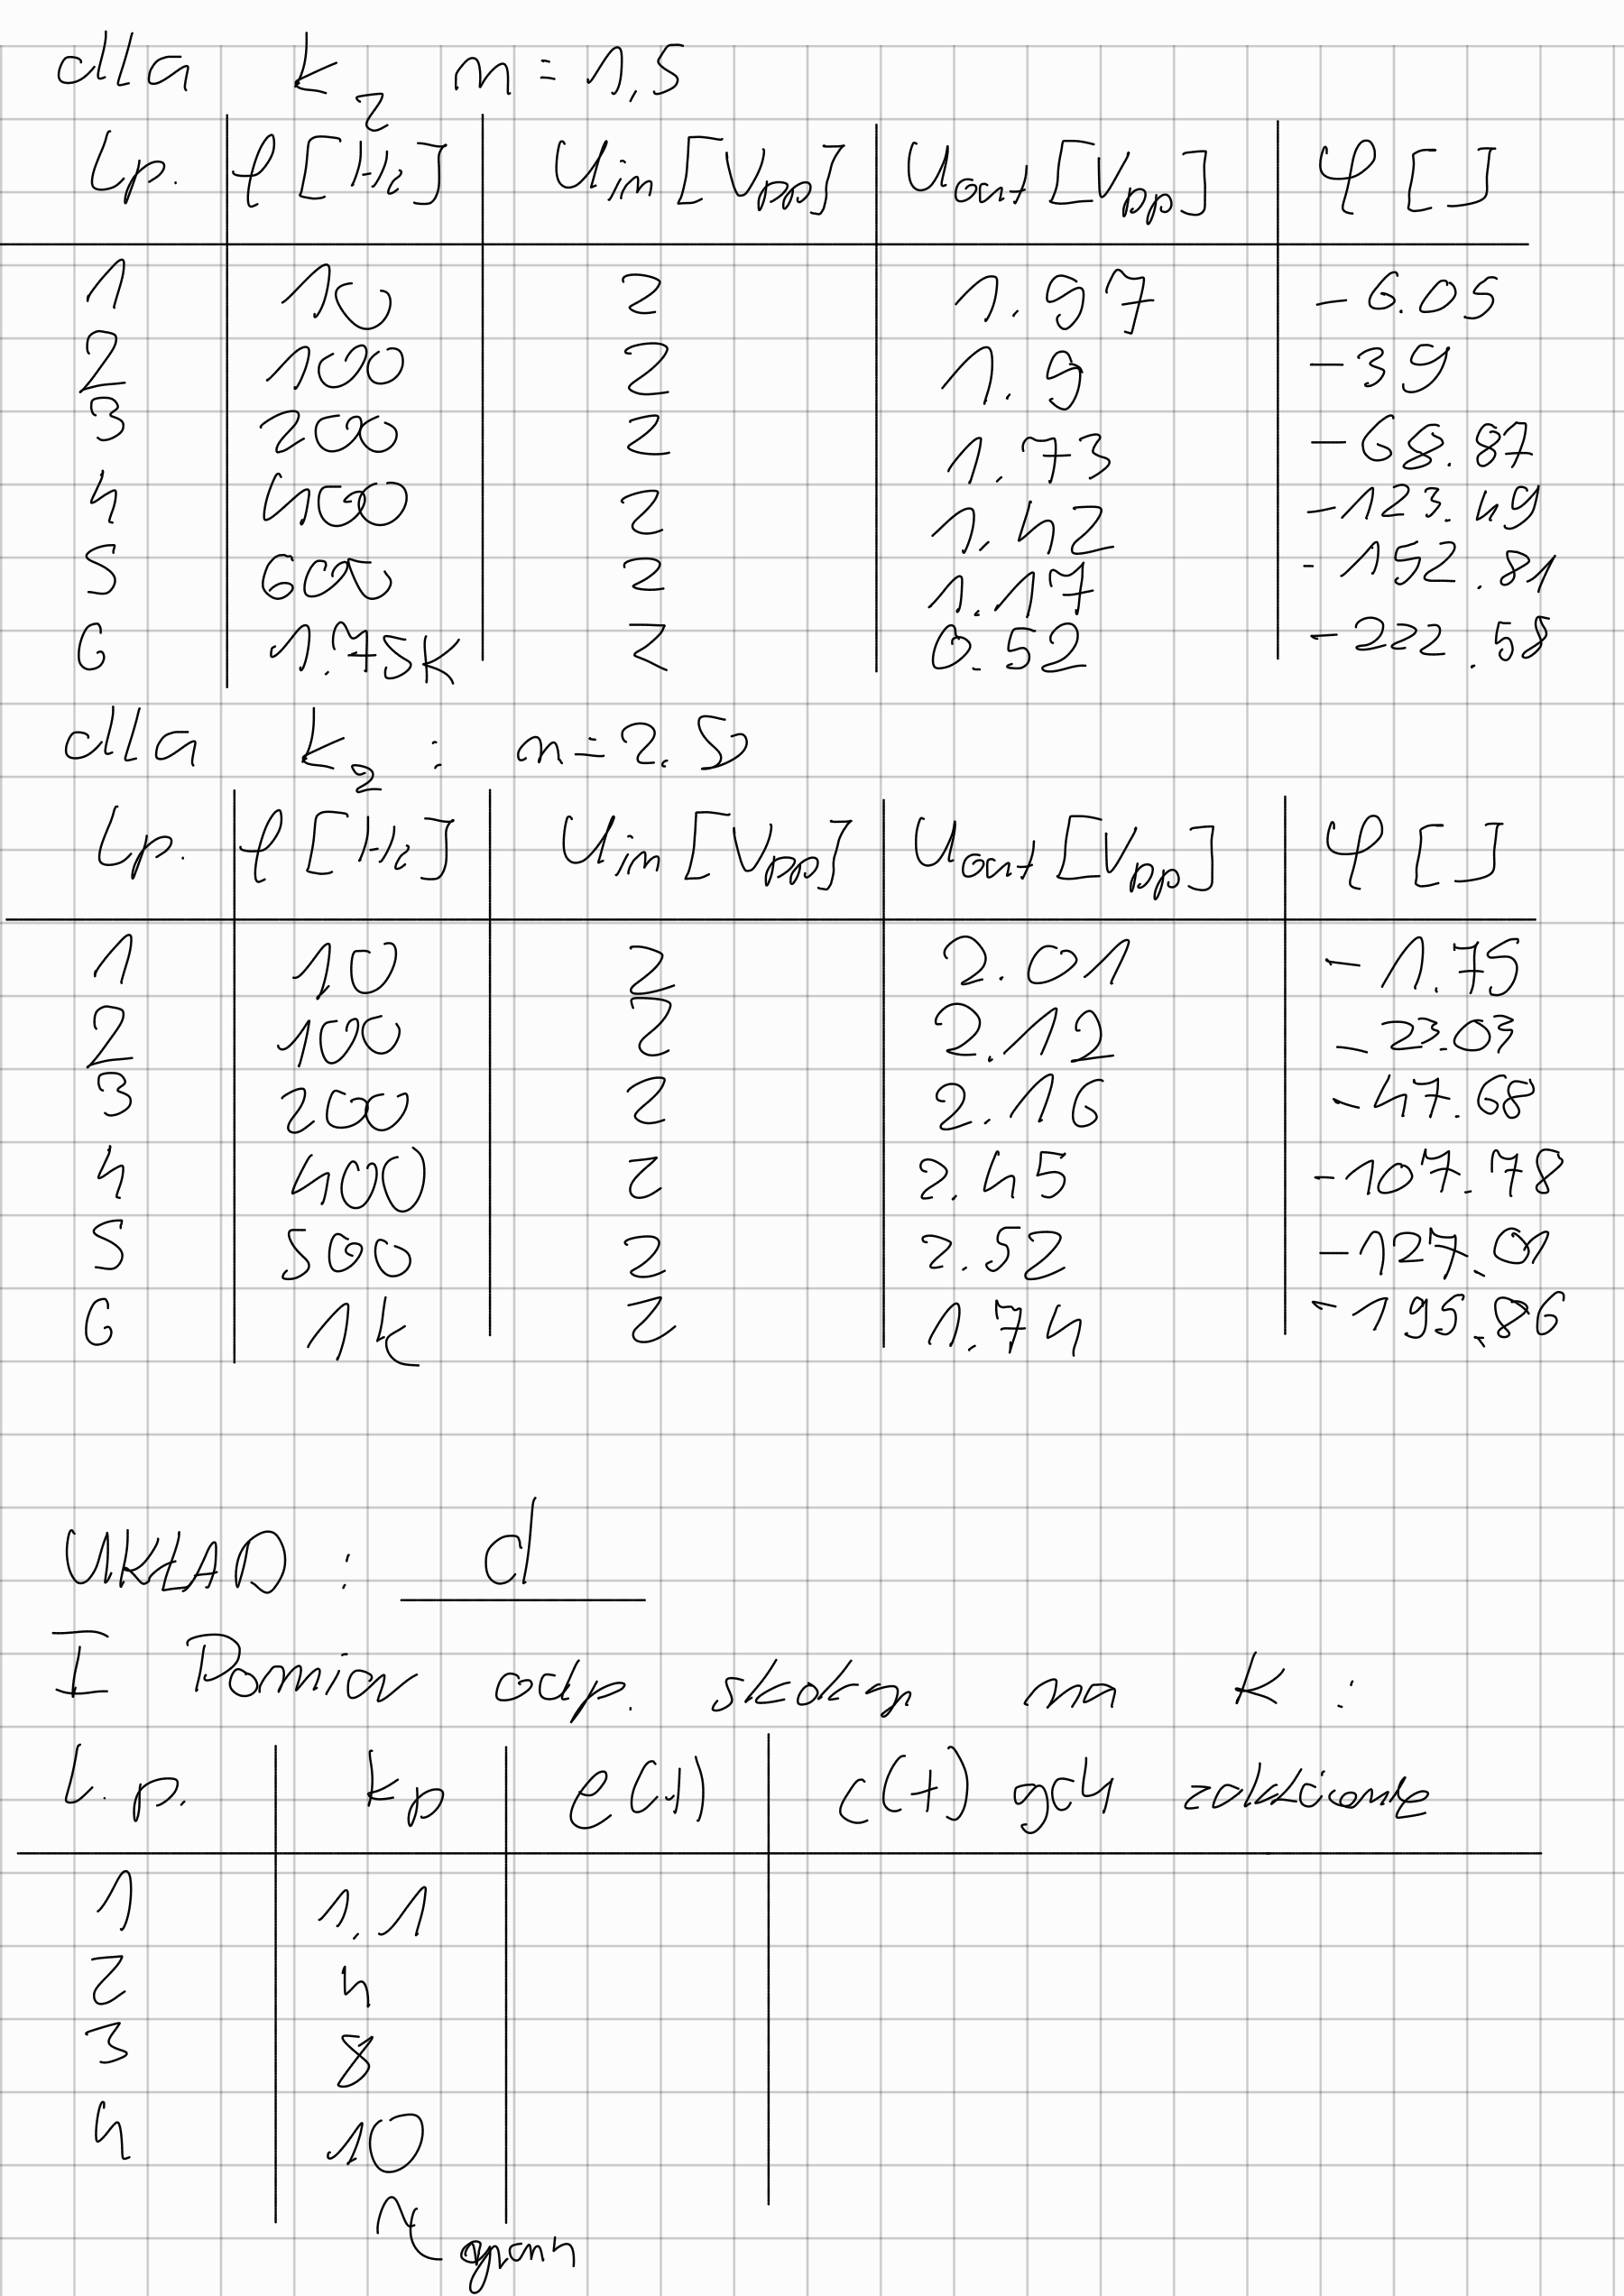 dla k2 n=1,5
Lp. f[Hz] Uin[Vpp] Uout[Vpp] φ[]
1 10 2 1.97 -6.05
2 100 2 1.9 -39
3 200 2 1.73 -68.87
4 400 2 1.42 -123.49
5 600 2 1.17 -152.81
6 1.75k 2 0.52 -222.58
dla k2: n=2.5
Lp. f[Hz] Uin[Vpp] Uout[Vpp] φ[]
1 10 2 2.01 -1.75
2 100 2 2.12 -23.03
3 200 2 2.16 -47.68
4 400 2 2.45 -107.78
5 500 2 2.52 -127.01
6 1k 2 1.74 -195.86
UKŁAD: d
I Pomiar odp. skokowy na k:
L.p. kp e(t) c(t) gdy zakłócenie
1 1.1
2 4
3 8
4 10